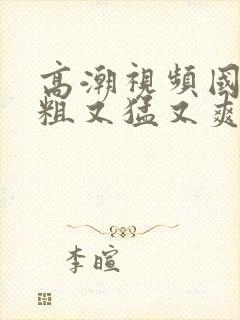 高潮視頻國
粗又猛又爽
李暄